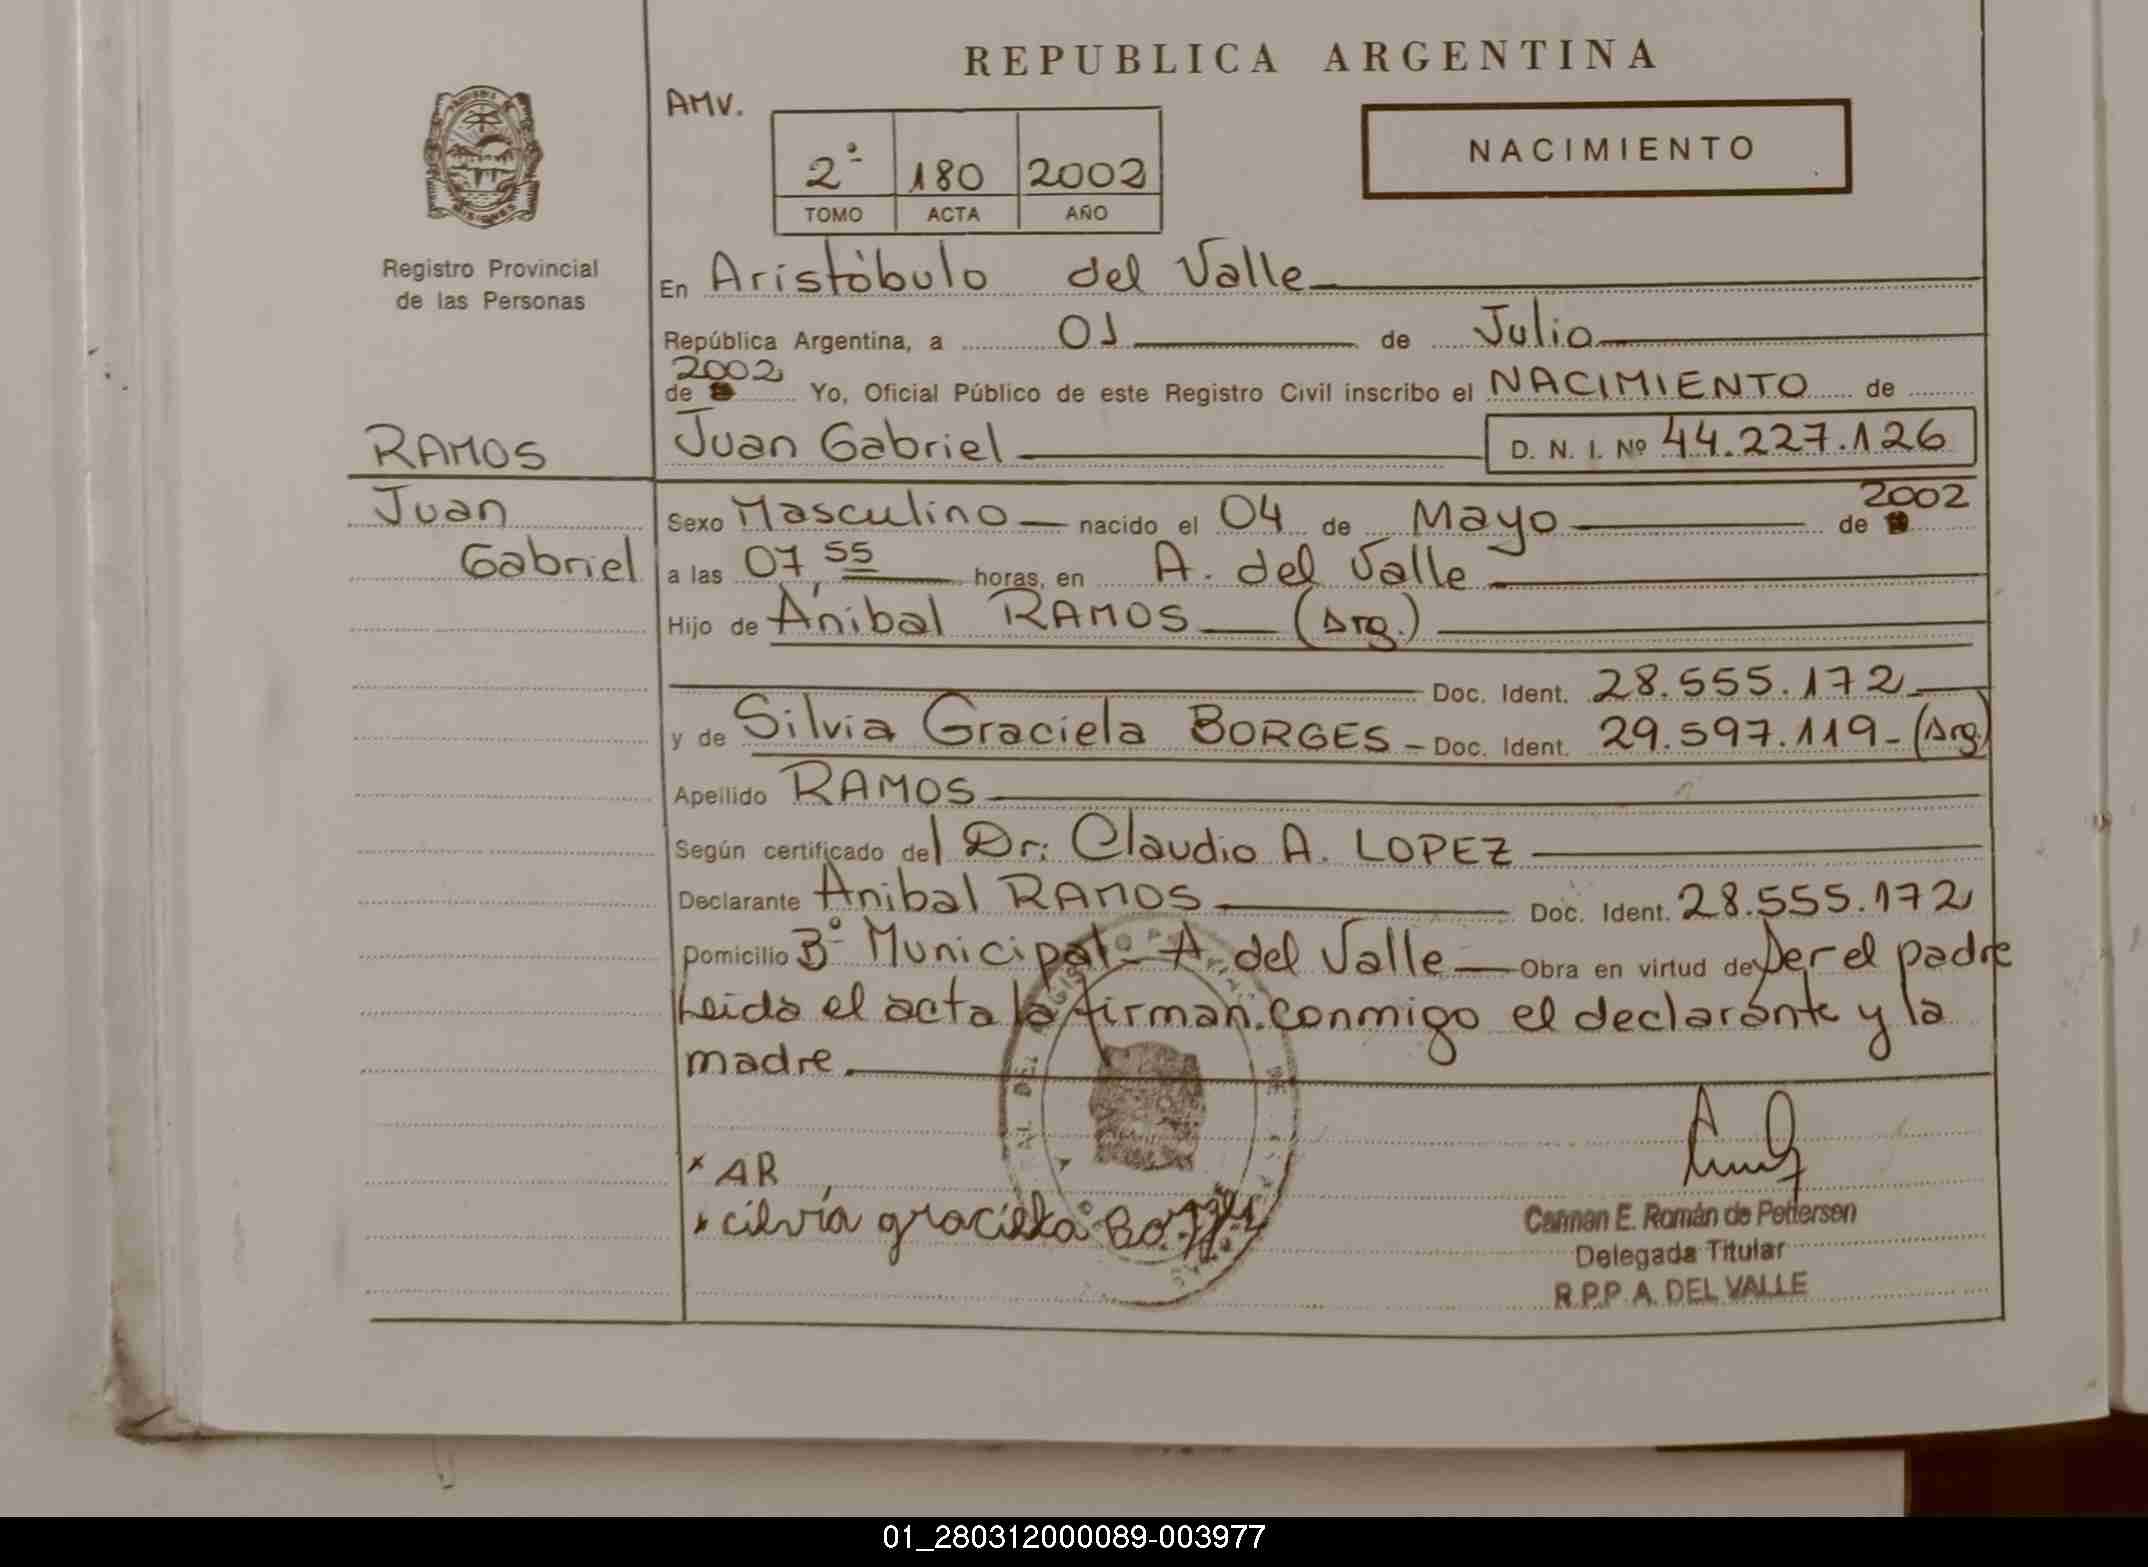 REPUBLICA ARGENTINA
AMV.
NACIMIENTO
2º 180 2002
TOMO ACTA AÑO
Registro Provincial
de las Personas
En Aristóbulo del Valle
República Argentina, a 01 de Julio
2002
de Yo, Oficial Público de este Registro Civil inscribo el NACIMIENTO de
RAMOS Juan Gabriel D. N. I. Nº 44.227.126
Juan
Gabriel
2002
Sexo Masculino nacido el 04 de Mayo de
a las 07,55 horas, en A. del Valle
Hijo de Aníbal RAMOS (Arg.)
Doc. Ident. 28.555.172
y de Silvia Graciela BORGES - Doc. Ident. 29.597.119 - (Arg.)
Apellido RAMOS
Según certificado del Dr: Claudio A. LOPEZ
Declarante Anibal RAMOS Doc. Ident. 28.555.172
Domicilio Bº Municipal - A. del Valle Obra en virtud de ser el padre
Leida el acta la firman conmigo el declarante y la
madre.
x AR
x cilvía graciela Borges
Carmen E. Román de Pettersen
Delegada Titular
R.P.P. A. DEL VALLE
01_280312000089-003977